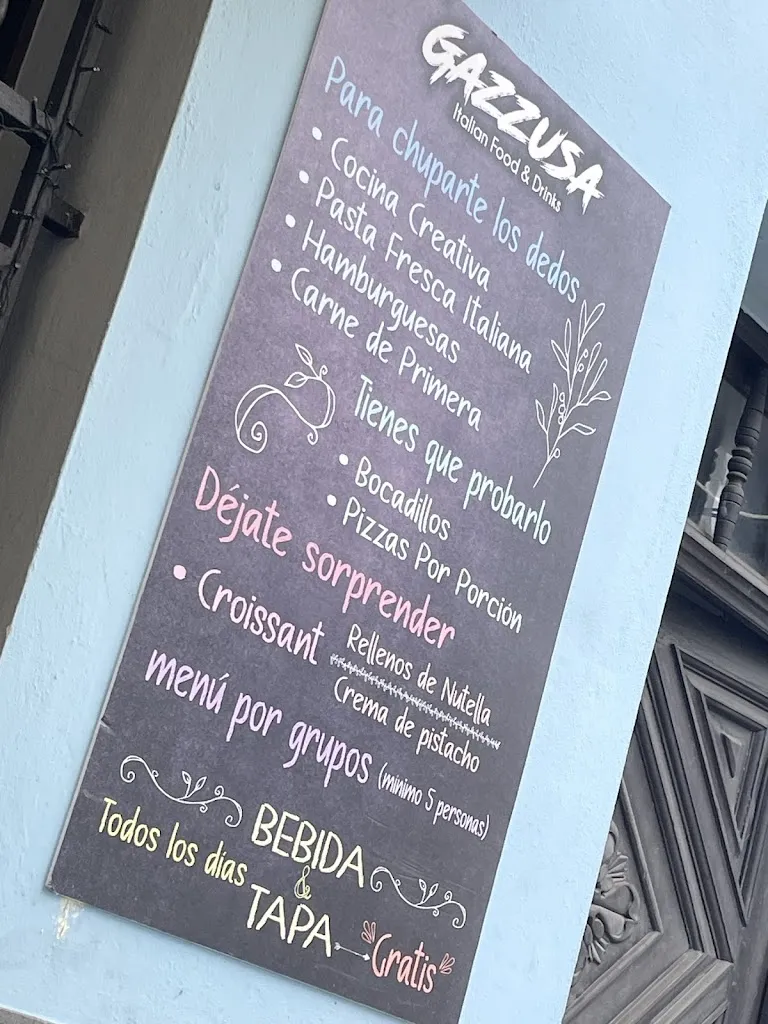 GAZZUSA
Italian Food & Drinks
Para chuparte los dedos
• Cocina Creativa
• Pasta Fresca Italiana
• Hamburguesas
• Carne de Primera
Tienes que probarlo
• Bocadillos
• Pizzas Por Porción
Déjate sorprender
• Croissant
Rellenos de Nutella
Crema de pistacho
menú por grupos (minimo 5 personas)
Todos los días
BEBIDA
&
TAPA
Gratis